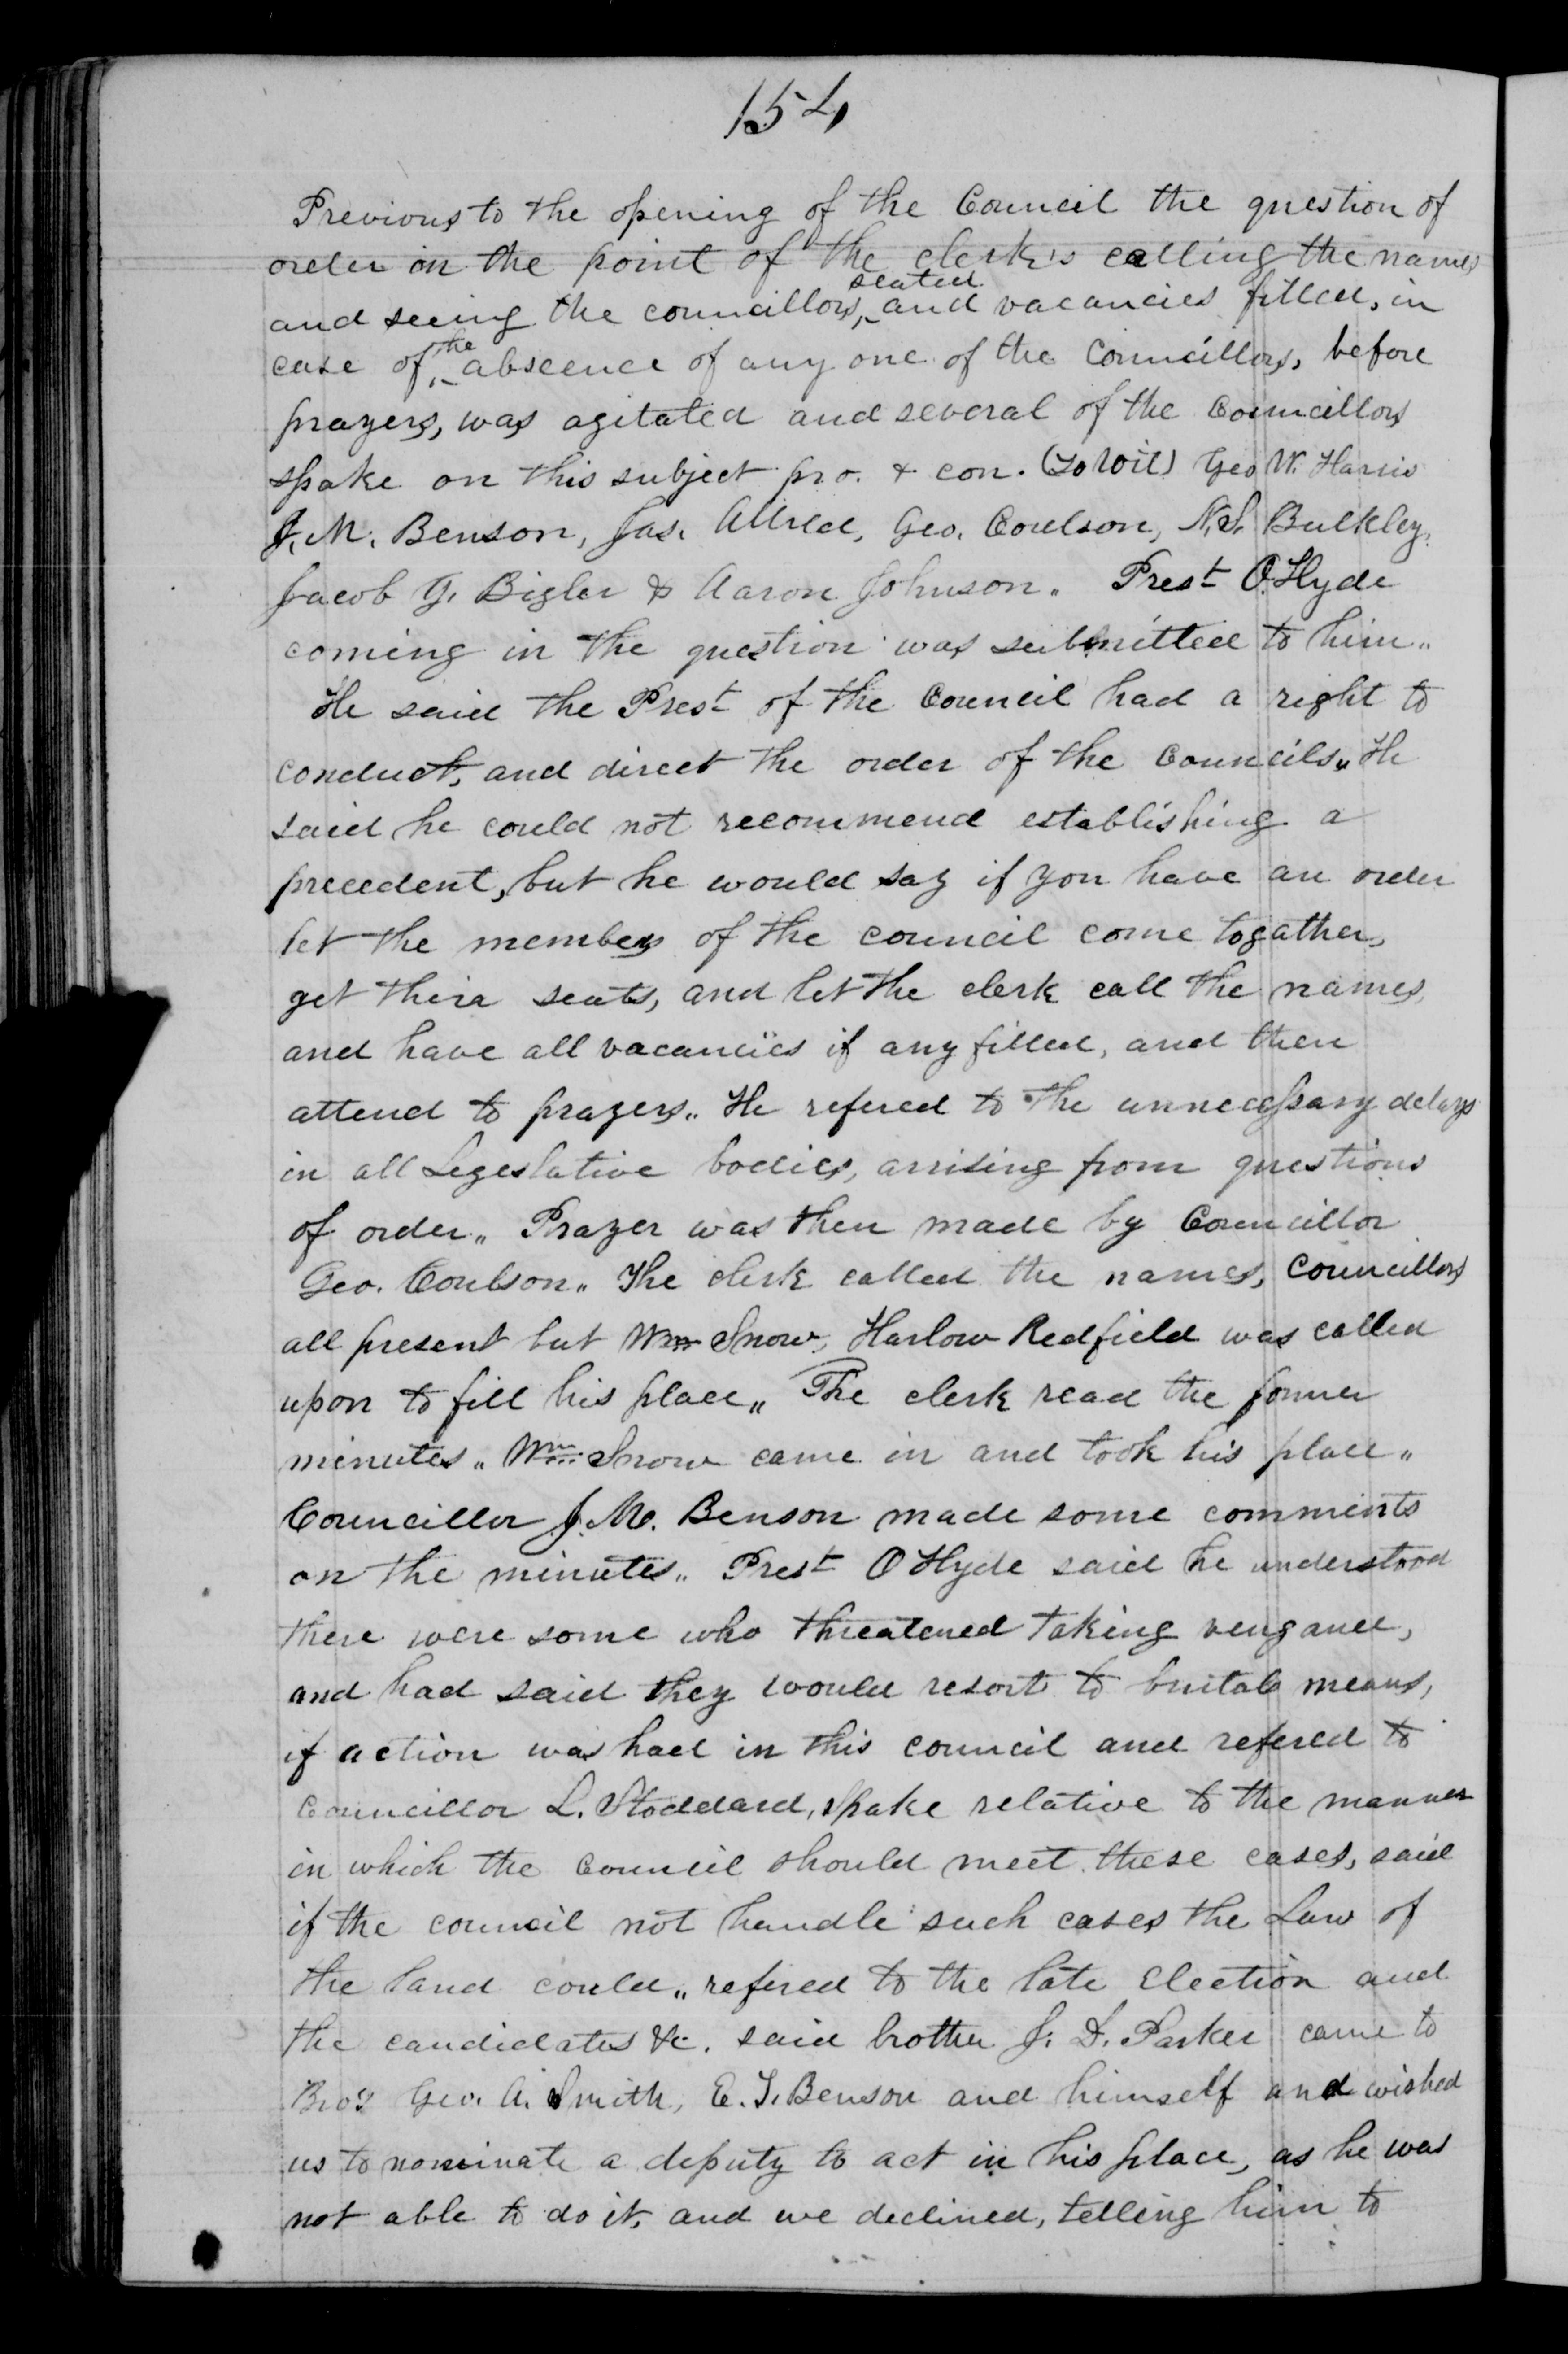 154
Previous to the opening of the Council the question of
order on the point of the clerk's calling the names
and seeing the councillors, seated and vacancies filled, in
case of, the abscence of any one of the Councillors, before
prayers, was agitated and several of the Councillors
spake on this subject pro. & con. (To Wit) Geo W. Harris
J. M. Benson, Jas. Allred, Geo. Coulson, N. S. Bulkley,
Jacob G. Bigler & Aaron Johnson„ Prest O. Hyde
coming in the question was submitted to him„
He said the Prest of the Council had a right to
conduct, and direct the order of the Councils„ He
said he could not recommend establishing a
precedent, but he would say if you have an order
let the members of the council come togather,
get thier seats, and let the clerk call the names,
and have all vacancies if any filled, and then
attend to prayers„ He refered to the unnecessary delays
in all Legeslative bodies, arrising from questions
of order„ Prayer was then made by Councillor
Geo. Coulson„ The clerk called the names, Councillors
all present but Wm Snow, Harlow Redfield was called
upon to fill his place„ The clerk read the former
minutes„ Wm Snow came in and took his place„
Councillor J. M. Benson made some comments
on the minutes„ Prest O Hyde said he understood
there were some who threatened taking vengance,
and had said they would resort to brutal means,
if action was had in this council and refered to
Councillor L. Stoddard, spake relative to the manner
in which the Council should meet these cases, said
if the council not handle such cases the Law of
the land could„ refered to the late Election and
the candidates &c. said brother J. D. Parker came to
Bro's Geo. A. Smith, E. T. Benson and himself and wished
us to nominate a deputy to act in his place, as he was
not able to do it, and we declined, telling him to